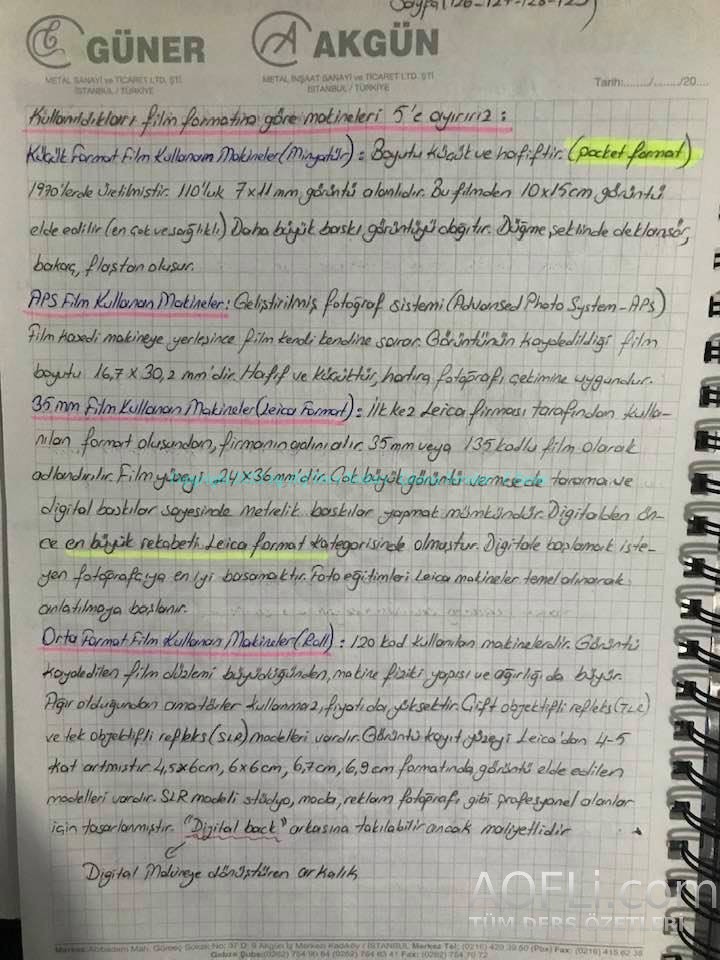 Sayfa (126-127-128-129)
GÜNER
METAL SANAYİ ve TİCARET LTD. ŞTİ.
İSTANBUL / TÜRKİYE
AKGÜN
METAL İNŞAAT SANAYİ ve TİCARET LTD. ŞTİ.
İSTANBUL / TÜRKİYE
Tarih:......./......./20....
Kullanıldıkları film formatına göre makineleri 5'e ayırırız:
Küçük Format Film Kullanan Makineler (Minyatür): Boyutu küçük ve hafiftir. (pocket format)
1970'lerde üretilmiştir. 110'luk 7x11 mm görüntü alanlıdır. Bu filmden 10x15cm görüntü
elde edilir (en çok ve sağlıklı) Daha büyük baskı görüntüyü dağıtır. Düğme şeklinde deklanşör,
bakaç, flaştan oluşur.
APS Film Kullanan Makineler: Geliştirilmiş fotoğraf sistemi (Advansed Photo System-APS)
Film kasedi makineye yerleşince film kendi kendine sarar. Görüntünün kaydedildiği film
boyutu 16,7 x 30,2 mm'dir. Hafif ve küçüktür, hatıra fotoğrafı çekimine uygundur.
35 mm Film Kullanan Makineler (Leica Format): İlk kez Leica firması tarafından kulla-
nılan format oluşundan, firmanın adını alır. 35 mm veya 135 kodlu film olarak
adlandırılır. Film yüzeyi 24x36 mm'dir. Çok büyük görüntü vermese de tarama ve
digital baskılar sayesinde metrelik baskılar yapmak mümkündür. Digitalden ön-
ce en büyük rekabeti Leica format kategorisinde olmuştur. Digitale başlamak iste-
yen fotoğrafçıya en iyi basamaktır. Foto eğitimleri Leica makineler temel alınarak
anlatılmaya başlanır.
Orta Format Film Kullanan Makineler (Roll): 120 kod kullanılan makinelerdir. Görüntü
kaydedilen film düzlemi büyüdüğünden, makine fiziki yapısı ve ağırlığı da büyür.
Ağır olduğundan amatörler kullanmaz, fiyatı da yüksektir. Çift objektifli refleks (TLR)
ve tek objektifli refleks (SLR) modelleri vardır. Görüntü kayıt yüzeyi Leica'dan 4-5
kat artmıştır 4,5x6cm, 6x6cm, 6,7cm, 6,9 cm formatında görüntü elde edilen
modelleri vardır. SLR modeli stüdyo, moda, reklam fotoğrafı gibi profesyonel alanlar
için tasarlanmıştır. "Dijital back" arkasına takılabilir ancak maliyetlidir
Digital Makineye dönüştüren arkalık
AOFLi.com
TÜM DERS ÖZETLERİ